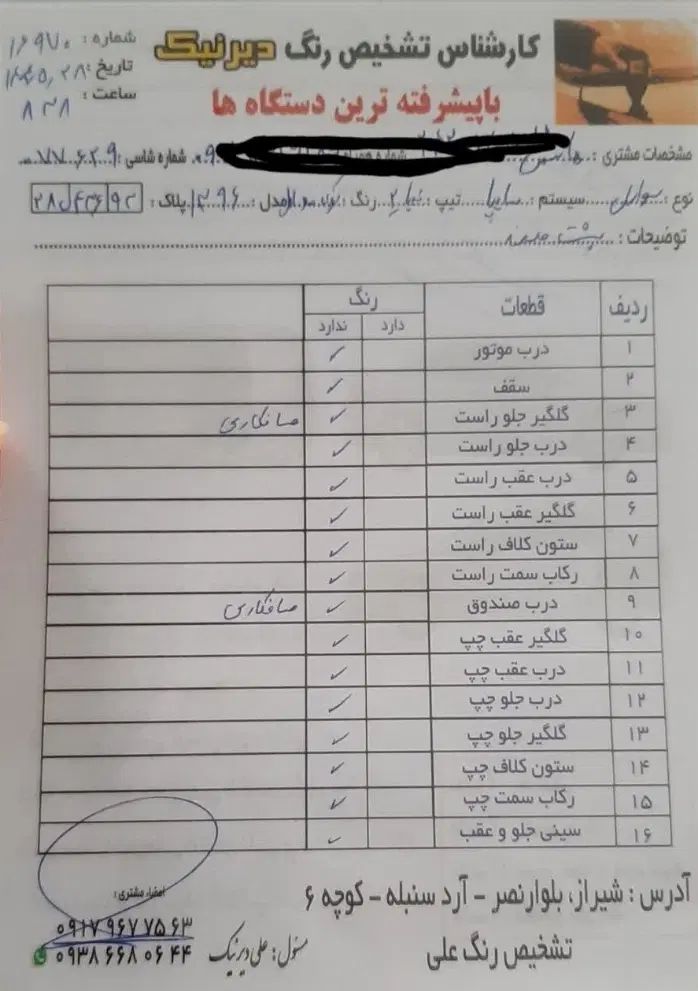 کارشناس تشخیص رنگ دیرنیک
باپیشرفته ترین دستگاه ها
شماره : ۱۶۹۷۰
تاریخ :
ساعت : ۸۳۸
مشخصات مشتری : شماره شاسی :
نوع : سواری سیستم : سایپا تیپ : رنگ : مدل : ۱۳۹۶ پلاک :
توضیحات :
ردیف قطعات رنگ
دارد ندارد
۱ درب موتور ✓
۲ سقف ✓
۳ گلگیر جلو راست ✓ صافکاری
۴ درب جلو راست ✓
۵ درب عقب راست ✓
۶ گلگیر عقب راست ✓
۷ ستون کلاف راست ✓
۸ رکاب سمت راست ✓
۹ درب صندوق ✓ صافکاری
۱۰ گلگیر عقب چپ ✓
۱۱ درب عقب چپ ✓
۱۲ درب جلو چپ ✓
۱۳ گلگیر جلو چپ ✓
۱۴ ستون کلاف چپ ✓
۱۵ رکاب سمت چپ ✓
۱۶ سینی جلو و عقب ✓
آدرس : شیراز، بلوارنصر – آرد سنبله – کوچه ۶
امضاء مشتری :
تشخیص رنگ علی
مسئول : علی دیرنیک
۰۹۱۷ ۹۶۷ ۷۵ ۶۳
۰۹۳۸ ۶۶۸ ۰۶ ۴۴